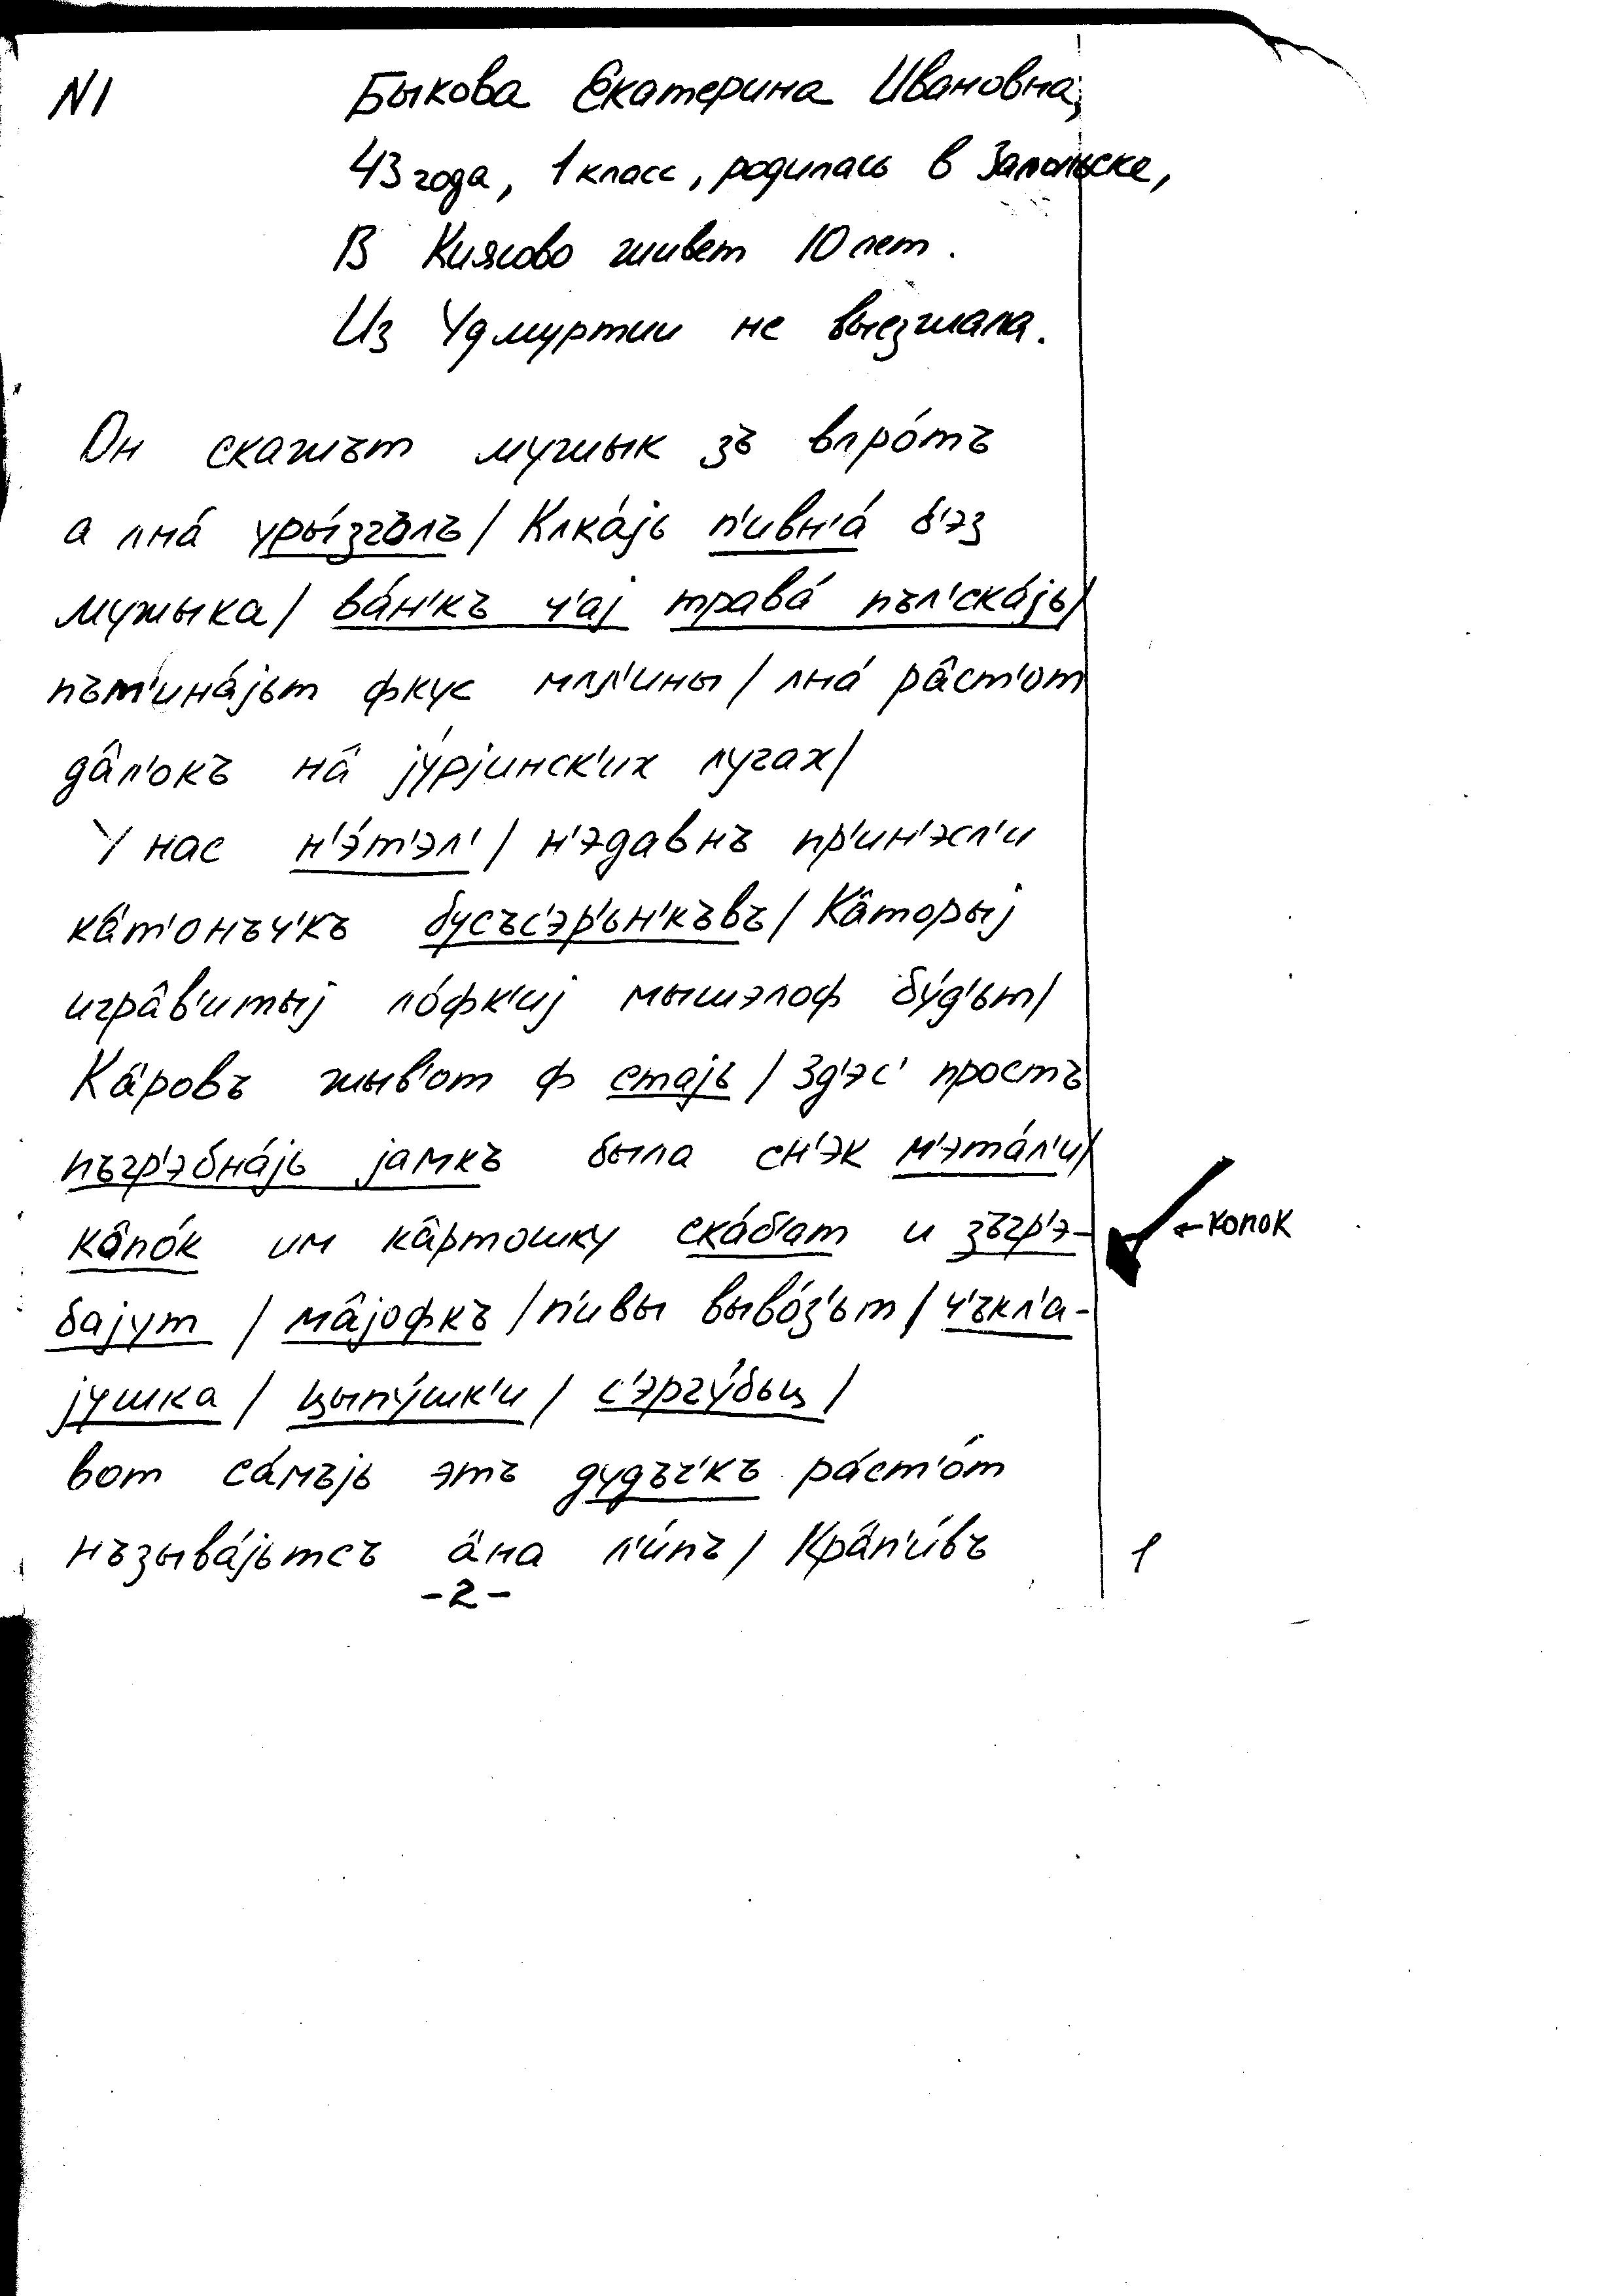 N1 Быкова Екатерина Ивановна,
43 года, 1 класс, родилась в
В Киясово живет 10 лет.
Из Удмуртии не выезжала.
Он скажът мужык зъ впро́тъ
а ʌна́ уры́згълъ / Кʌка́jь п'ивн'а́ б'эз
мужыка / ва́н'къ ч'аj трава́ пъл'ска́jь /
пъм'ина́jьт фкус мʌл'ины / ʌна́ ра̂ст'от
да̂л'окъ на̂ jу́рjинск'их лугах /
У нас н'э́т'эл' / н'эдавнъ пр'ин'эсл'и
ка̂т'онъч'къ бусъс'э́р'ьн'къвъ / Ка̂торыj
игра̂в'итыj ло́фк'иj мышэлоф бу́д'ьт /
Ка̂ровъ жыв'от ф стаjь / Зд'эс' простъ
пъгр'эбна́jь jамкъ была сн'эк м'эта́л'и /
ка̂по́к им ка̂ртошку ска́б'ат и зъгр'э-
←копок
баjут / ма̂jофкъ / п'ивы выво́з'ьт / ч'ъкл'а-
jушка / цыпу́шк'и / с'эргу́бьц /
вот са́мъjь этъ дудъч'къ ра́ст'о́т
нъзыва́jьтсъ а̂на л'и́пъ / Кра̂п'и́въ
1
-2-